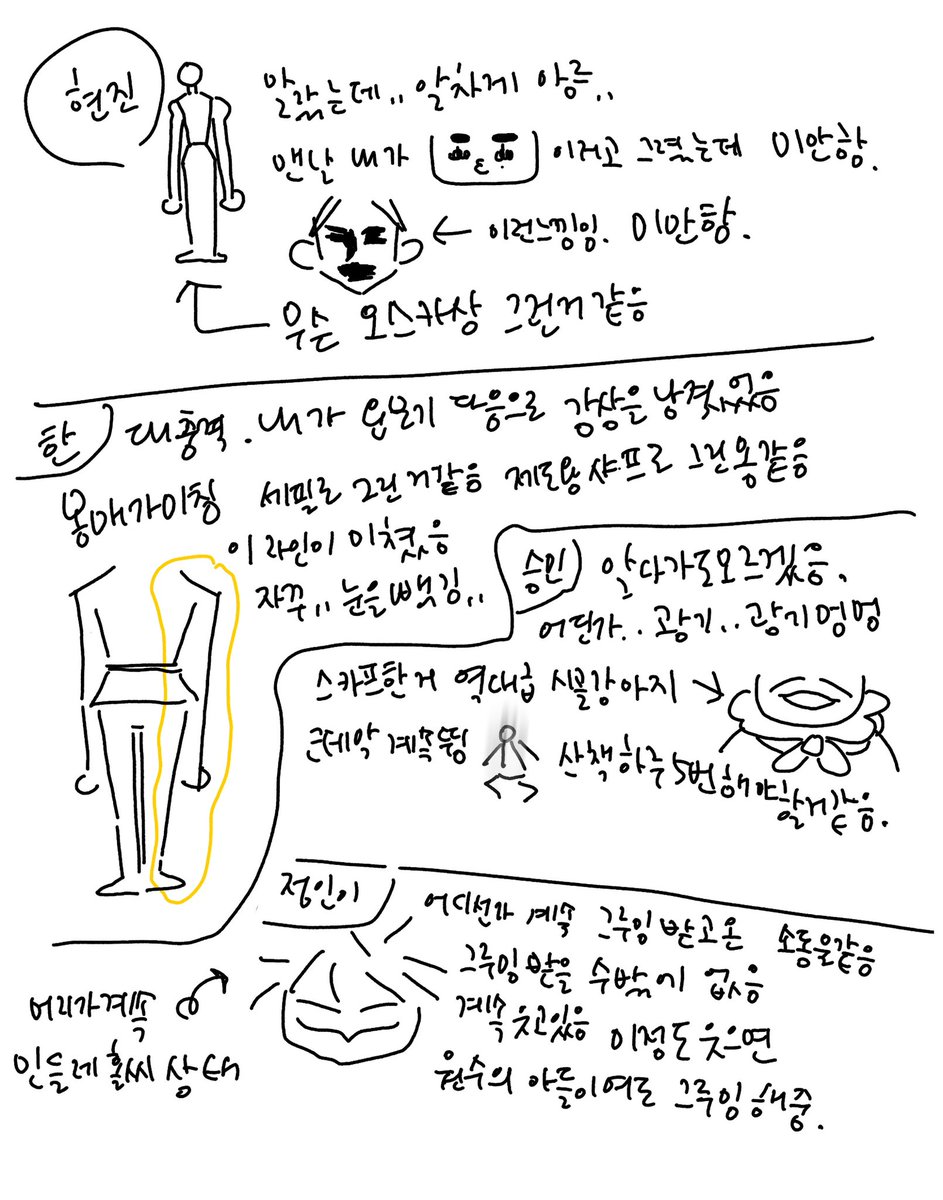 현진
알았는데,, 알차게 아름,,
맨날 내가 이러고 그렸는데 미안함.
← 이런느낌임. 미안함.
무슨 오스카상 그런거같음
한
대충격. 내가 입보기 다음으로 감상을 남겼었음
몸매가미침 세필로 그린거같음 제도용샤프로 그린몸같음
이 라인이 미쳤음
자꾸,, 눈을뺏김,,
승민
알다가도모르겠음.
어딘가.. 광기.. 광기멍멍
스카프한거 역대급 시골강아지 →
근데약 계속뜀
산책하루5번해야할거같음.
정인이
어디선가 계속 그루밍받고온 소동물같음
그루밍받을 수밖에 없음
계속웃고있음 이정도웃으면
원수의 아들이여도 그루밍해줌.
머리가계속
민들레홀씨 상태